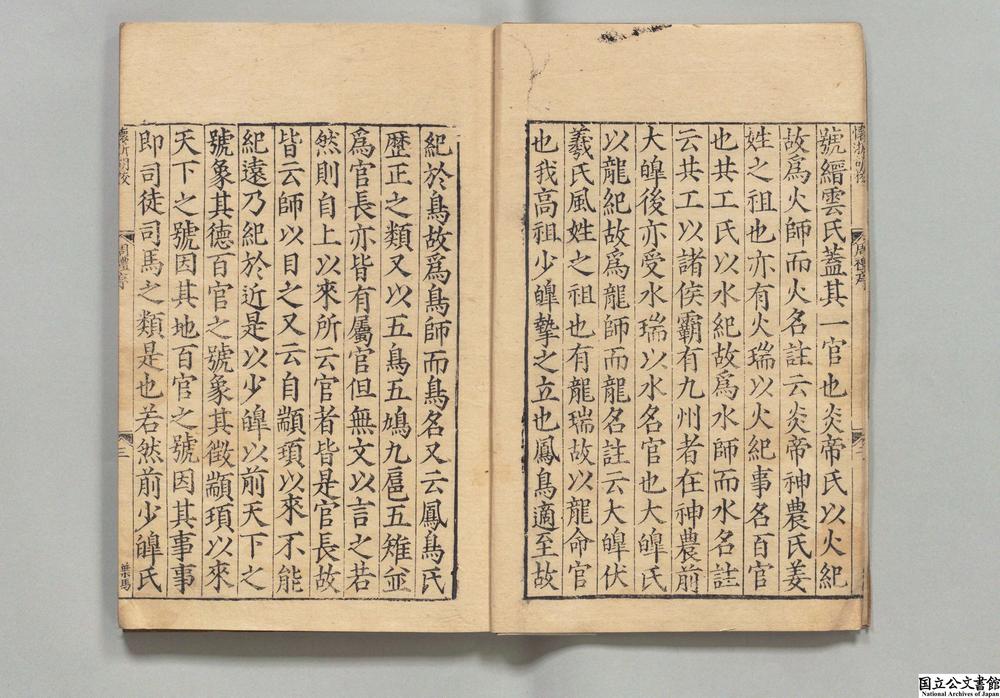 號縉雲氏蓋其一官也炎帝氏以火紀
故爲火師而火名註云炎帝神農氏姜
姓之祖也亦有火瑞以火紀事名百官
也共工氏以水紀故爲水師而水名註
云共工以諸侯霸有九州者在神農前
大皥後亦受水瑞以水名官也大皥氏
以龍紀故爲龍師而龍名註云大皥伏
羲氏風姓之祖也有龍瑞故以龍命官
也我高祖少皥摯之立也鳳鳥適至故
紀於鳥故爲鳥師而鳥名又云鳳鳥氏
歷正之類又以五鳥五鳩九扈五雉並
爲官長亦皆有屬官但無文以言之若
然則自上以來所云官者皆是官長故
皆云師以目之又云自顓頊以來不能
紀遠乃紀於近是以少皥以前天下之
號象其德百官之號象其徵顓頊以來
天下之號因其地百官之號因其事事
即司徒司馬之類是也若然前少皥氏
周禮序
三
葉馬
国立公文書館
National Archives of Japan